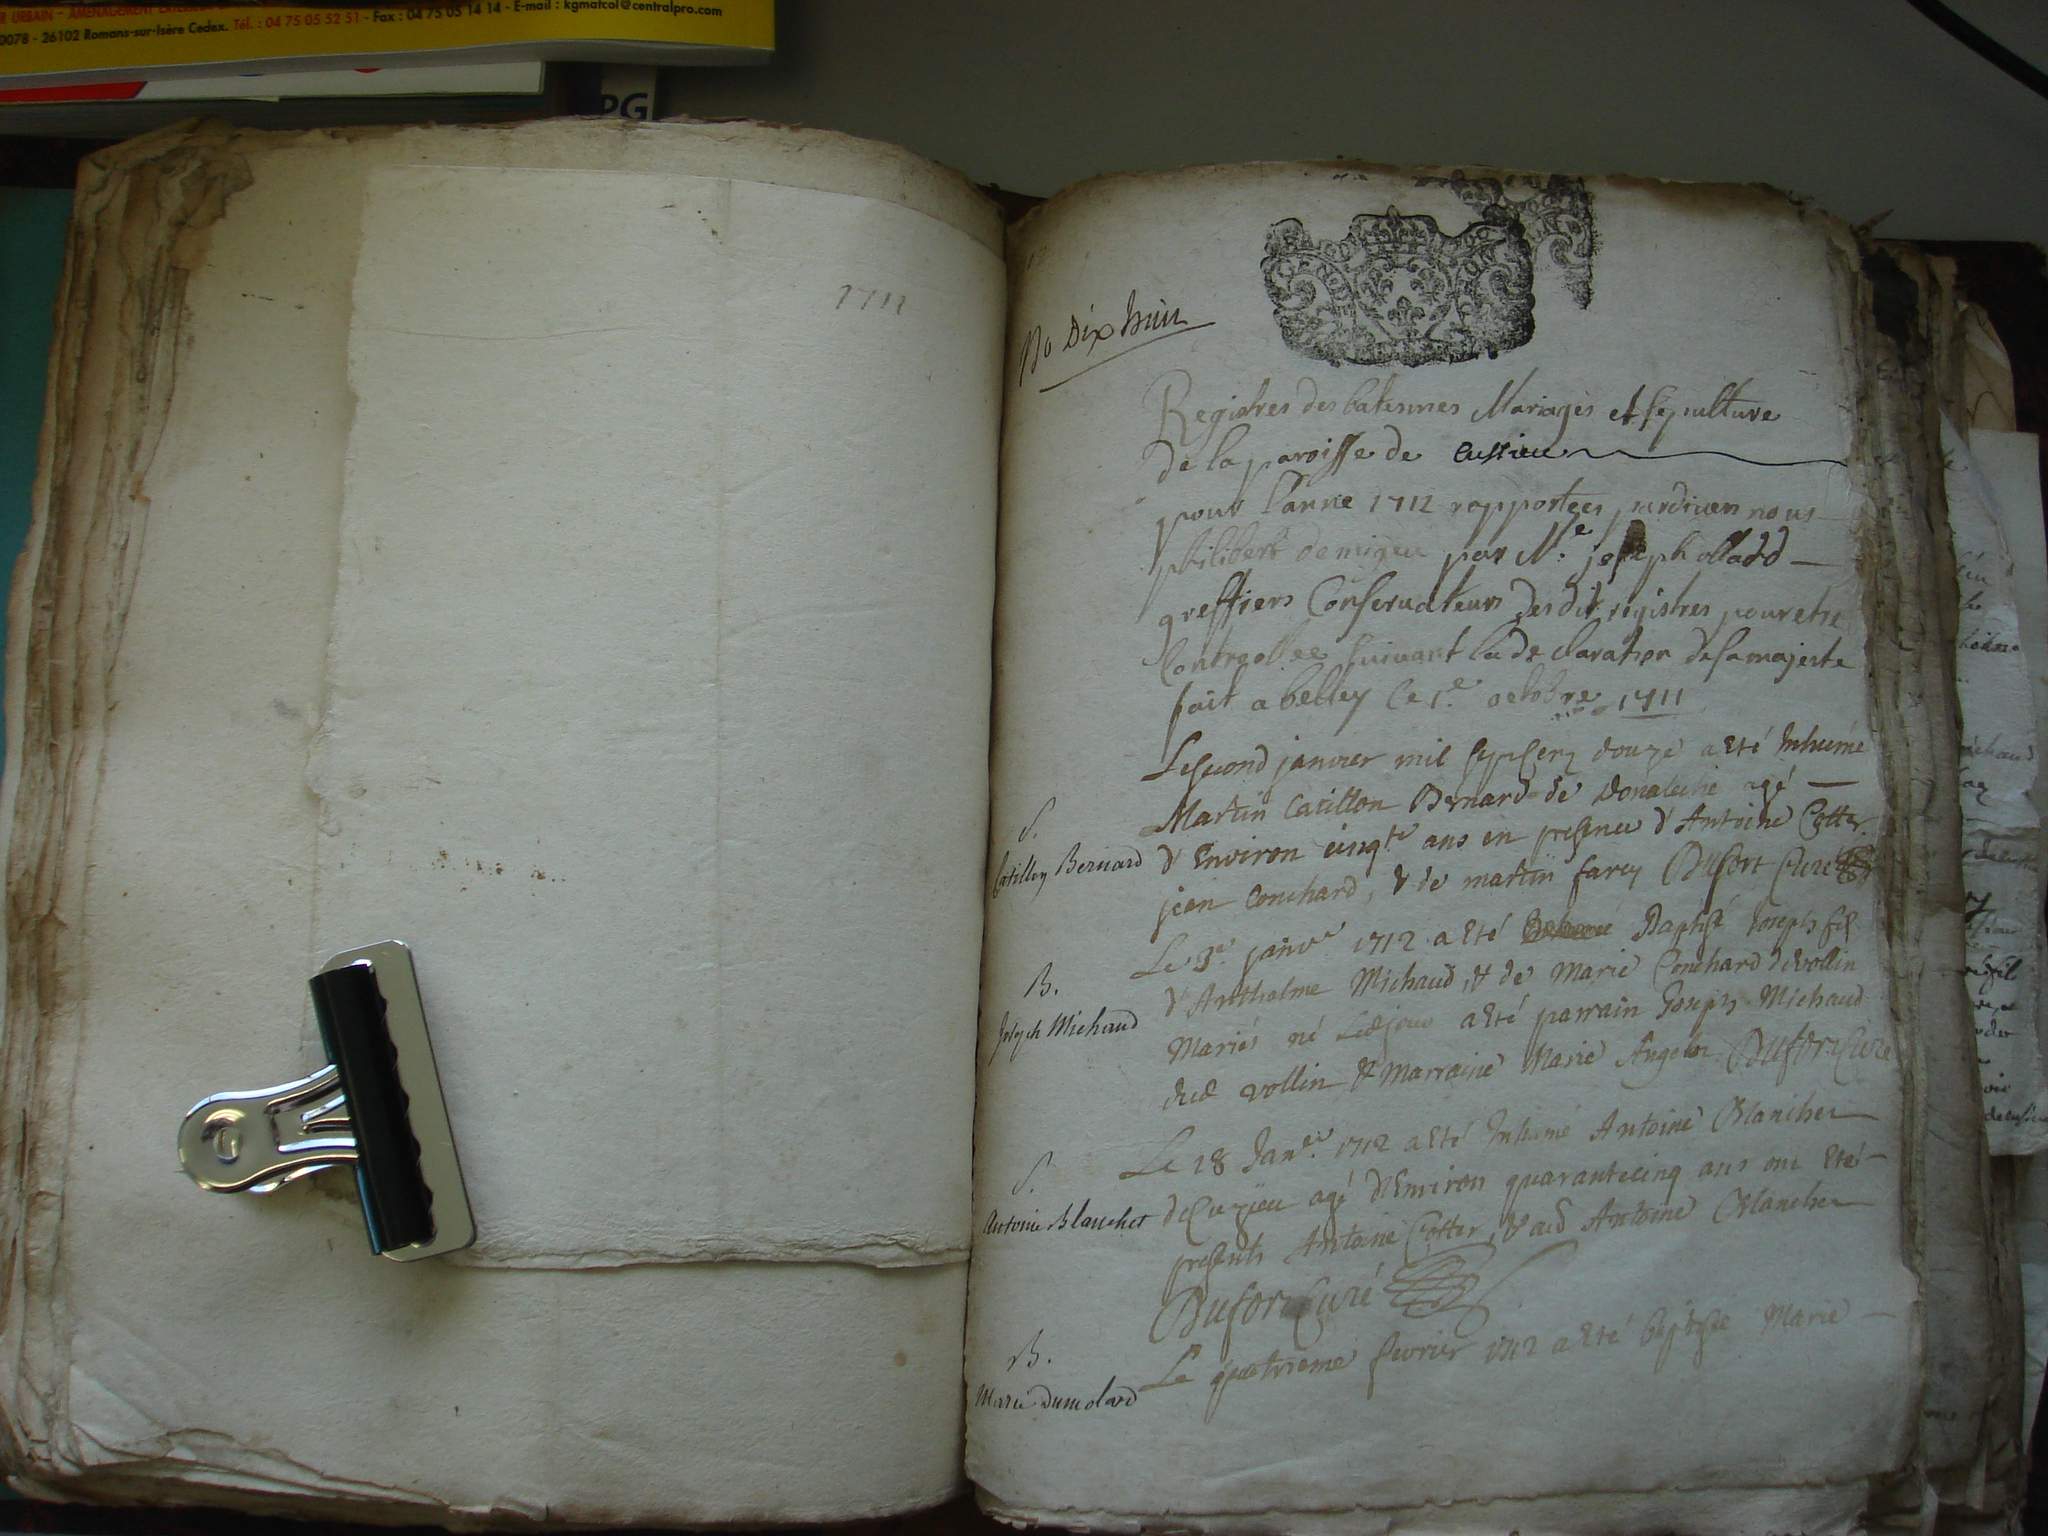 R URBAIN – AMENAGEMENT EXTERIEUR
0078 - 26102 Romans-sur-Isère Cedex. Tél. : 04 75 05 52 51 - Fax : 04 75 05 14 14 - E-mail : kgmatcol@centralpro.com
PG
No Dix huit
Registres des batesmes Mariages et sepulture
de la paroisse de Cussieu
pour l'anne 1712 rapportees pardiuen nous
philibert demigeu par Me joseph
greffiers Conservateurs des dit registres pour etre
Controollee suivant la declaration de sa majeste
fait a belley le 1e octobre 1711
Le second janvier mil sept cent douze a Eté Inhumé
Martin Catillon Bernard de agé
d'Environ cinqte ans en presence d'Antoine Cotter
jean Conchard, & de martin farcy Dufort Curé
S.
Catillon Bernard
Le 3e janve 1712 a Eté Baptisé Joseph fils
d'Anthelme Michaud, & de Marie Conchard de vollin
Mariés né a Eté parrain Joseph Michaud
dud vollin & Marraine Marie Dufort Curé
B.
Joseph Michaud
Le 18 Janer 1712 a Eté Inhumé Antoine Blanchet
de Cuzieu agé d'Environ quarantecinq ans ont Eté
presents Antoine Cotter, & aud Antoine Blanchet
Dufort Curé
S.
Antoine Blanchet
Le quatrieme fevrier 1712 a Eté baptisée Marie
B.
Marie Dumolard